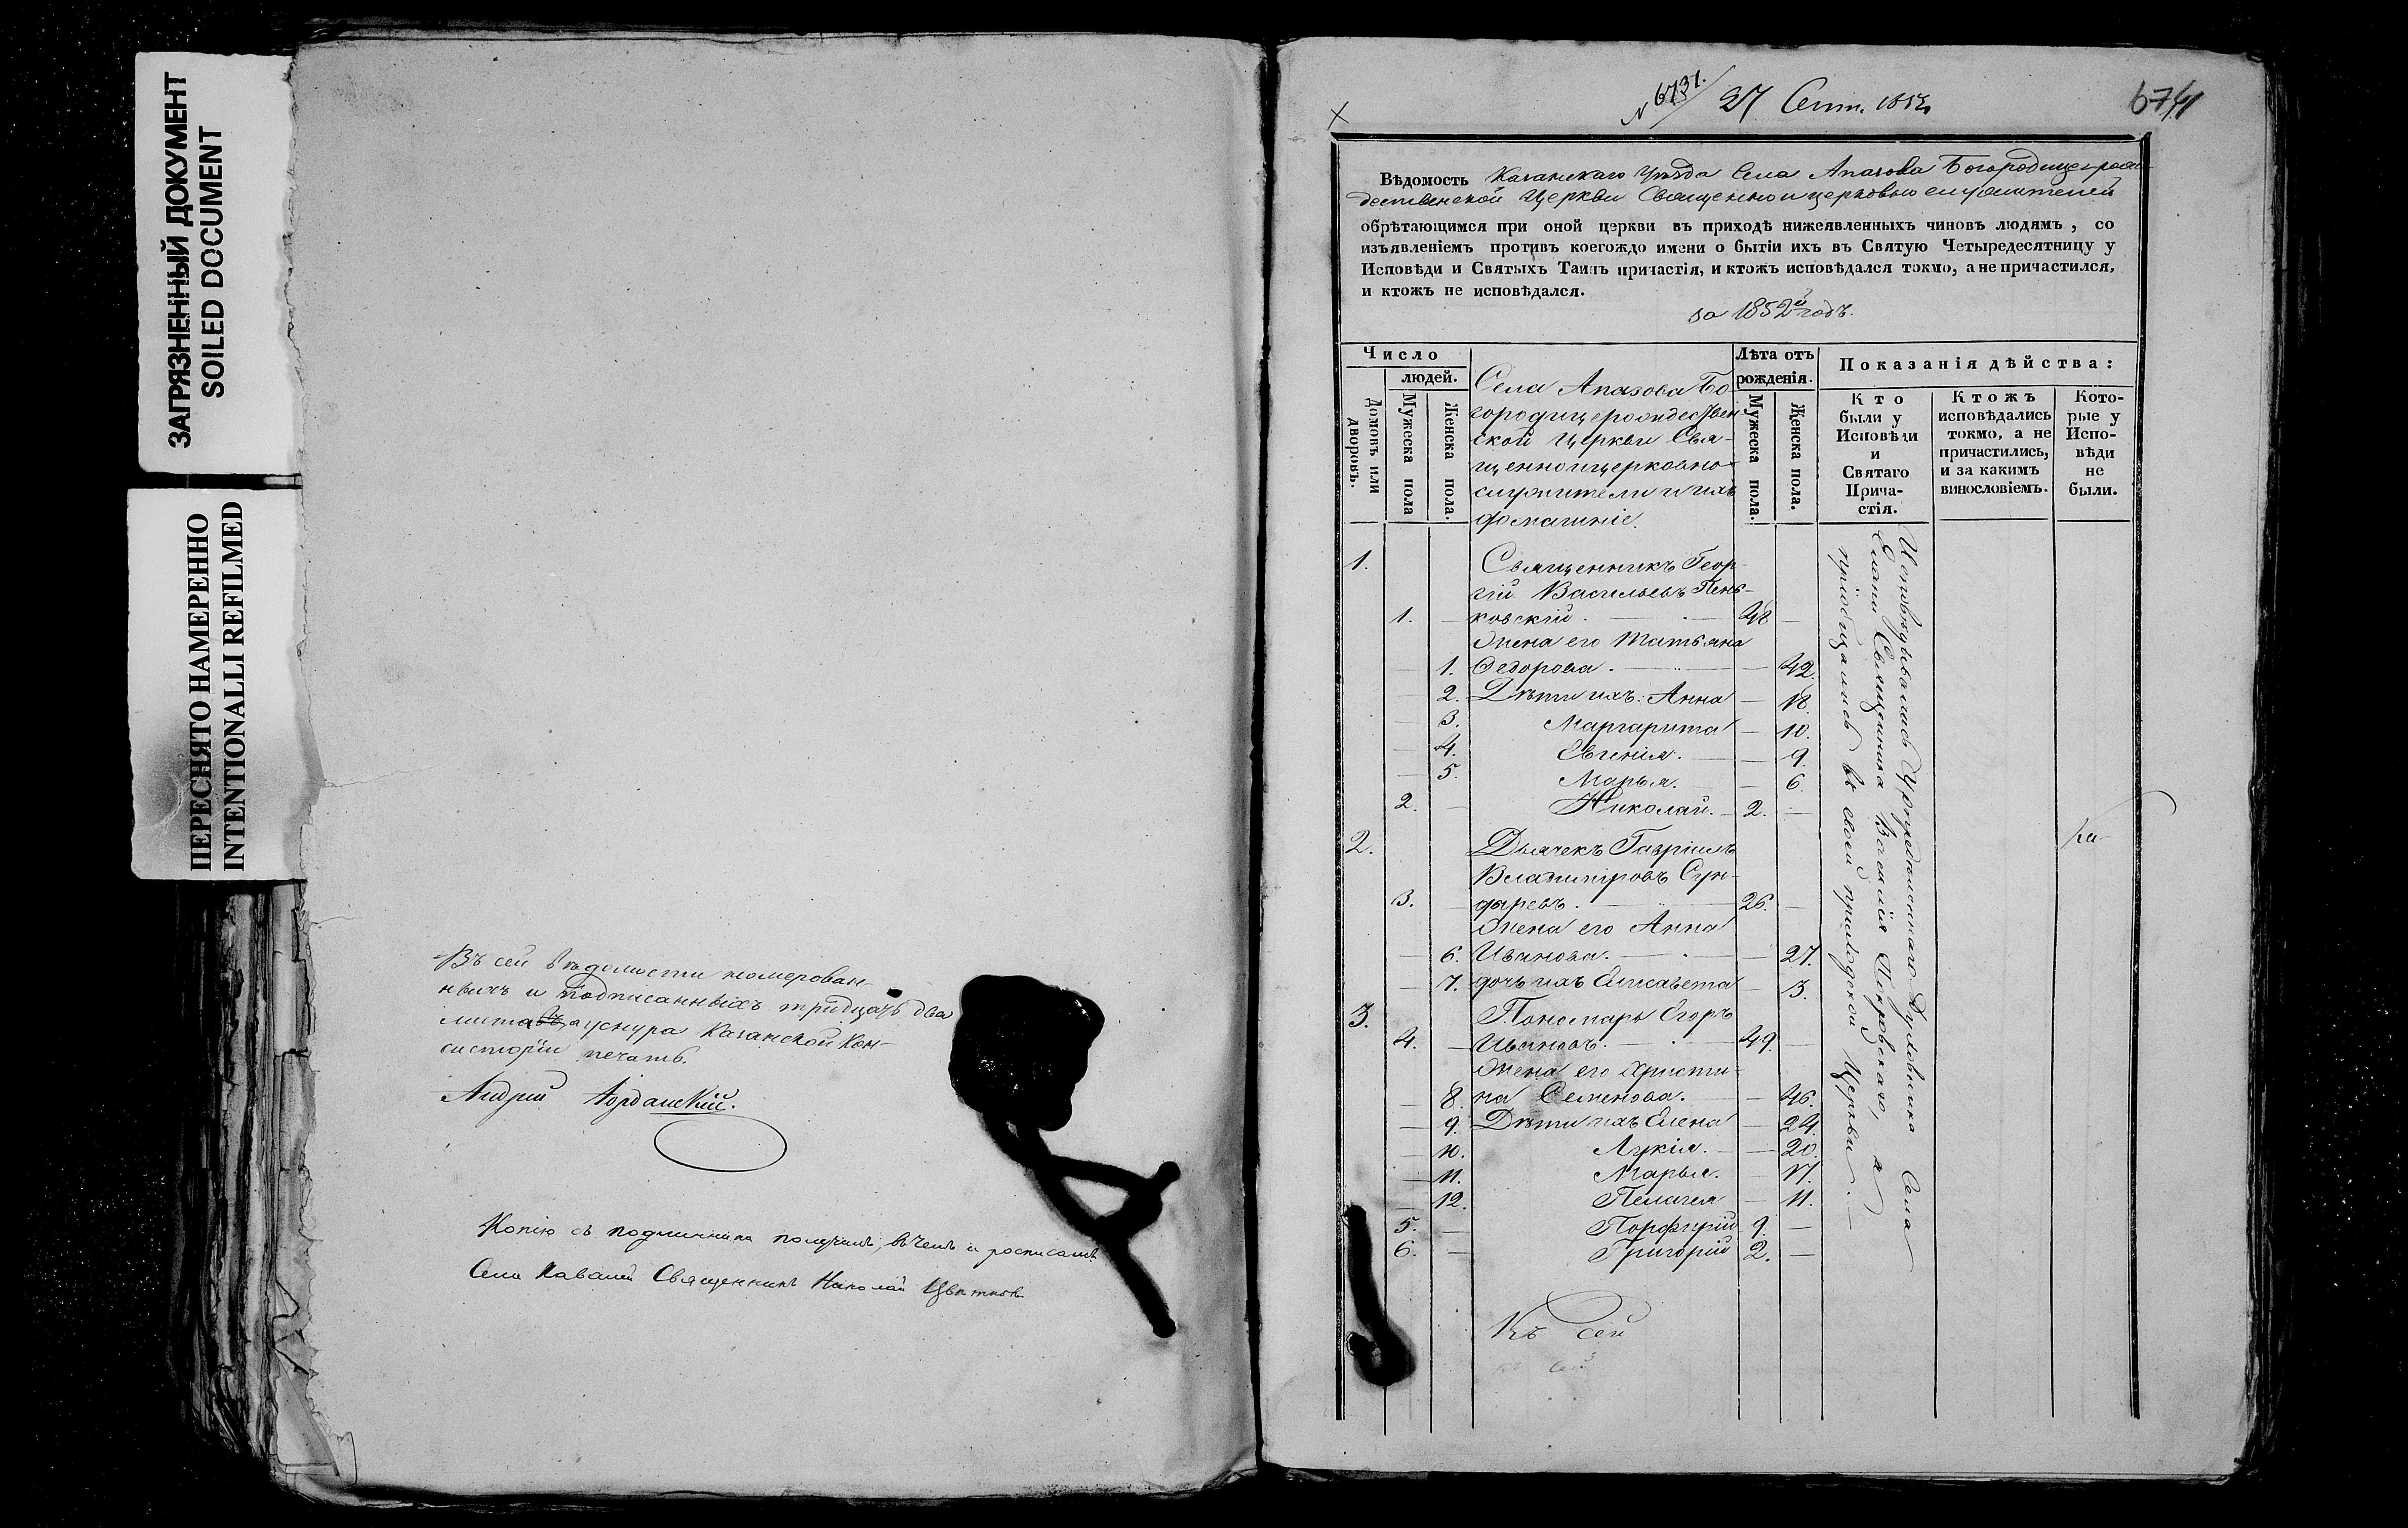 ЗАГРЯЗНЕННЫЙ ДОКУМЕНТ
SOILED DOCUMENT
ПЕРЕСНЯТО НАМЕРЕННО
INTENTIONALLI REFILMED
Въ сей вѣдомости номерован-
ныхъ и подписанныхъ тридцать два
листа, а у снура Казанской Кон-
систоріи печать.
Андрей Іорданскій.
Копію съ подлинника получилъ, въ чемъ и росписался
Села Кавалей Священникъ Николай Цвѣтковъ.
N 6731. 27 Сент. 1852
674
Вѣдомость Казанскаго Уѣзда Села Апазова Богородицерож-
дественской Церкви Священно и церковно служителей
обрѣтающимся при оной церкви въ приходѣ нижеявленныхъ чиновъ людямъ, со
изъявленіемъ противъ коегождо имени о бытіи ихъ въ Святую Четыредесятницу у
Исповѣди и Святыхъ Таинъ причастія, и ктожъ исповѣдался токмо, а не причастился,
и ктожъ не исповѣдался.
за 1852й годъ.
Число
людей.
Домовъ или дворовъ.
Мужеска пола
Женска пола.
Села Апазова Бо-
городицерождествен-
ской Церкви Свя-
щенноицерковно-
служители и ихъ
домашніе.
Лѣта отъ
рожденія.
Мужеска пола.
Женска пола.
Показанія дѣйства:
Кто
были у
Исповѣди
и
Святаго
Прича-
стія.
Ктожъ
исповѣдались
токмо, а не
причастились,
и за какимъ
винословіемъ.
Кото-
рые у
Испо-
вѣди
не
были.
1. Священникъ Геор-
гій Васильевъ Пень-
1. — ковскій. — 48 —
Жена его Татьяна
— 1. Федорова. — 42.
— 2. Дѣти ихъ: Анна — 18.
— 3. Маргарита — 10.
— 4. Евгенія. — 9.
— 5. Марья. — 6.
2. — Николай. — 2. —
2. Дьячекъ Гавріилъ
Владиміровъ Сун-
3. — дыревъ. — 26. —
Жена его Анна
— 6. Иванова. — 27.
— 7. дочь ихъ Елисавета — 3.
3. Пономарь Егоръ
4. — Ивановъ. — 49. —
Жена его Христи-
— 8. на Семенова. — 46.
— 9. Дѣти ихъ Елена — 24.
— 10. Лукія. — 20.
— 11. Марья. — 17.
— 12. Пелагея — 11.
5. — Порфирій 9. —
6. — Григорій 2. —
Исповѣдывались у опредѣленнаго Духовника Села
Священника Василія Покровскаго, а
пріобщались въ своей приходской Церкви.
Ка-
Къ сей